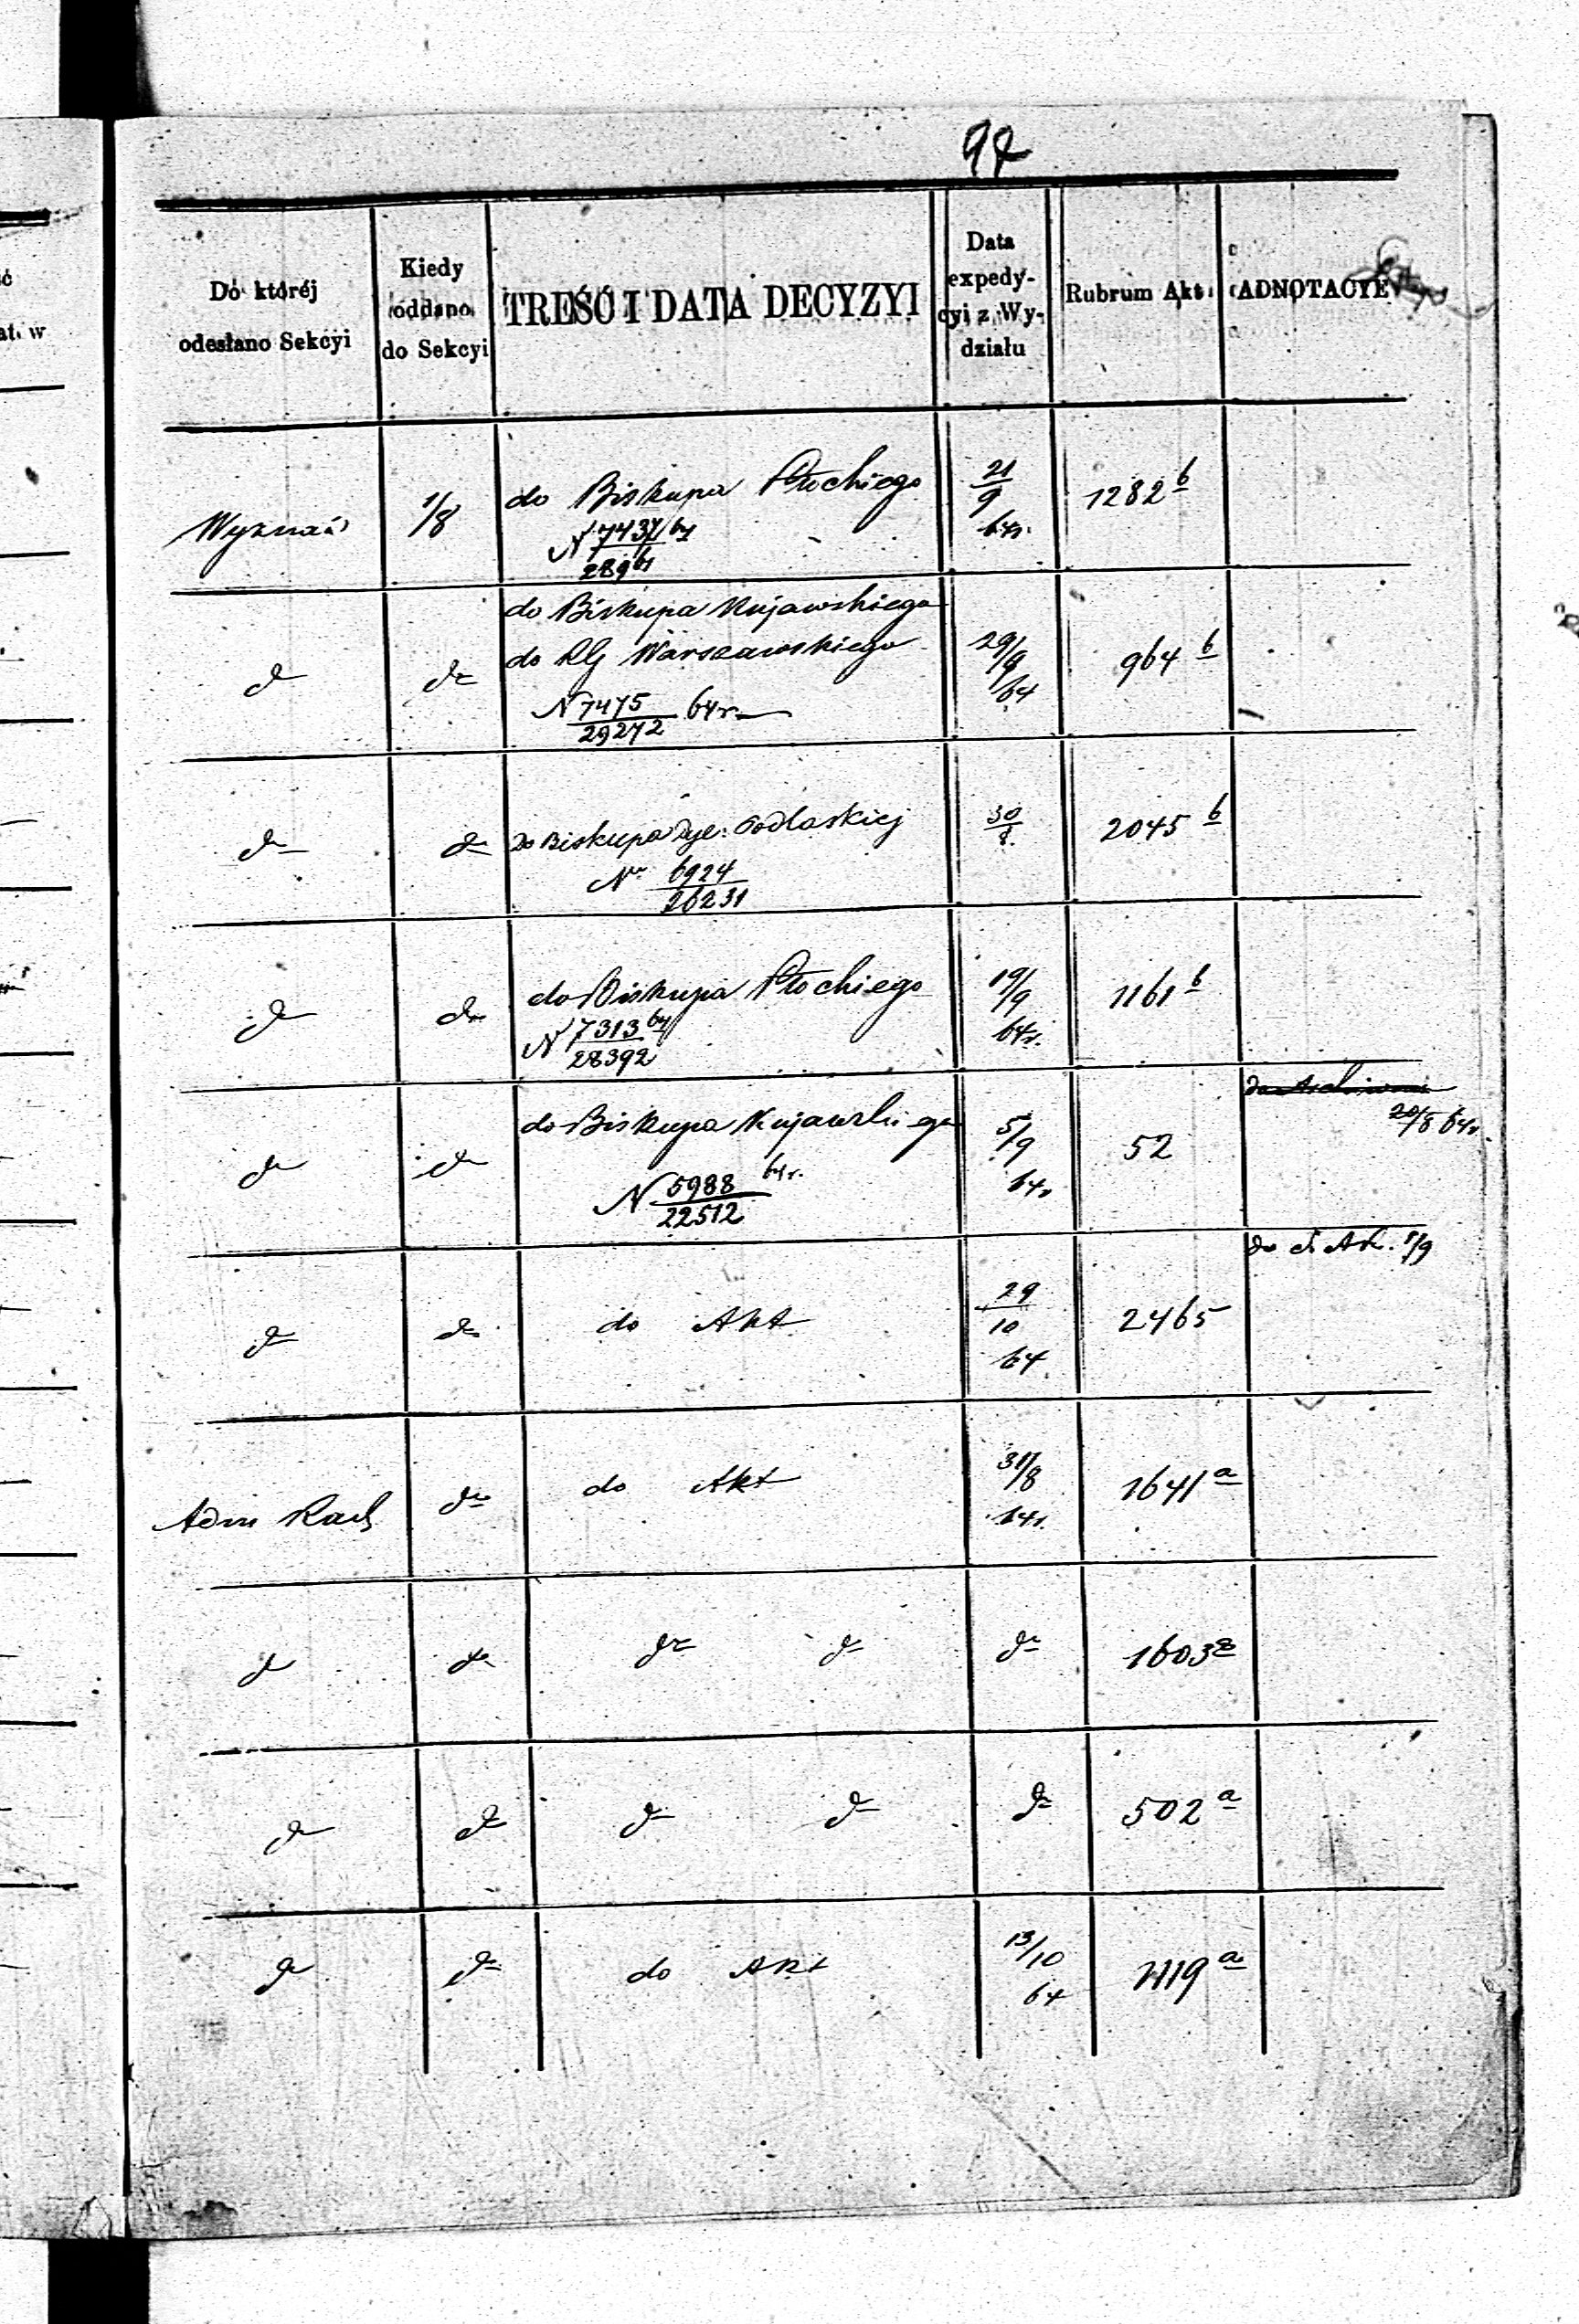 97
Do której
odesłano Sekcyi
Kiedy
oddano
do Sekcyi
TREŚĆ I DATA DECYZYI
Data
expedy-
cyi z Wy-
działu
Rubrum Akt
ADNOTACYE
Wyznań
1/8
do Biskupa Płockiego
N 7437/64
289
21/9
64r.
1282 b
do Biskupa Kujawskiego
do RG Warszawskiego
N 7475 64r
29272
do
do
29/9
64
964 b
do
do
Do Biskupa Dye: Podlaskiej
Nr 6924
26231
30/8
2045 b
do
do
do Biskupa Płockiego
N 7313 64
28392
19/9
64r.
1161 b
do
do
do Biskupa Kujawskiego
N 5988 64r.
22512
5/9
64r
52
do Archiwum
20/8 64r.
do
do
do Akt
29/10
64
2465
do AK. 1/9
Adm Rach
do
do Akt
31/8
64r.
1641 a
do
do
do do
do
1603 a
do
do
do do
do
502 a
do
do
do Akt
13/10
64
1119 a
ć
at. w